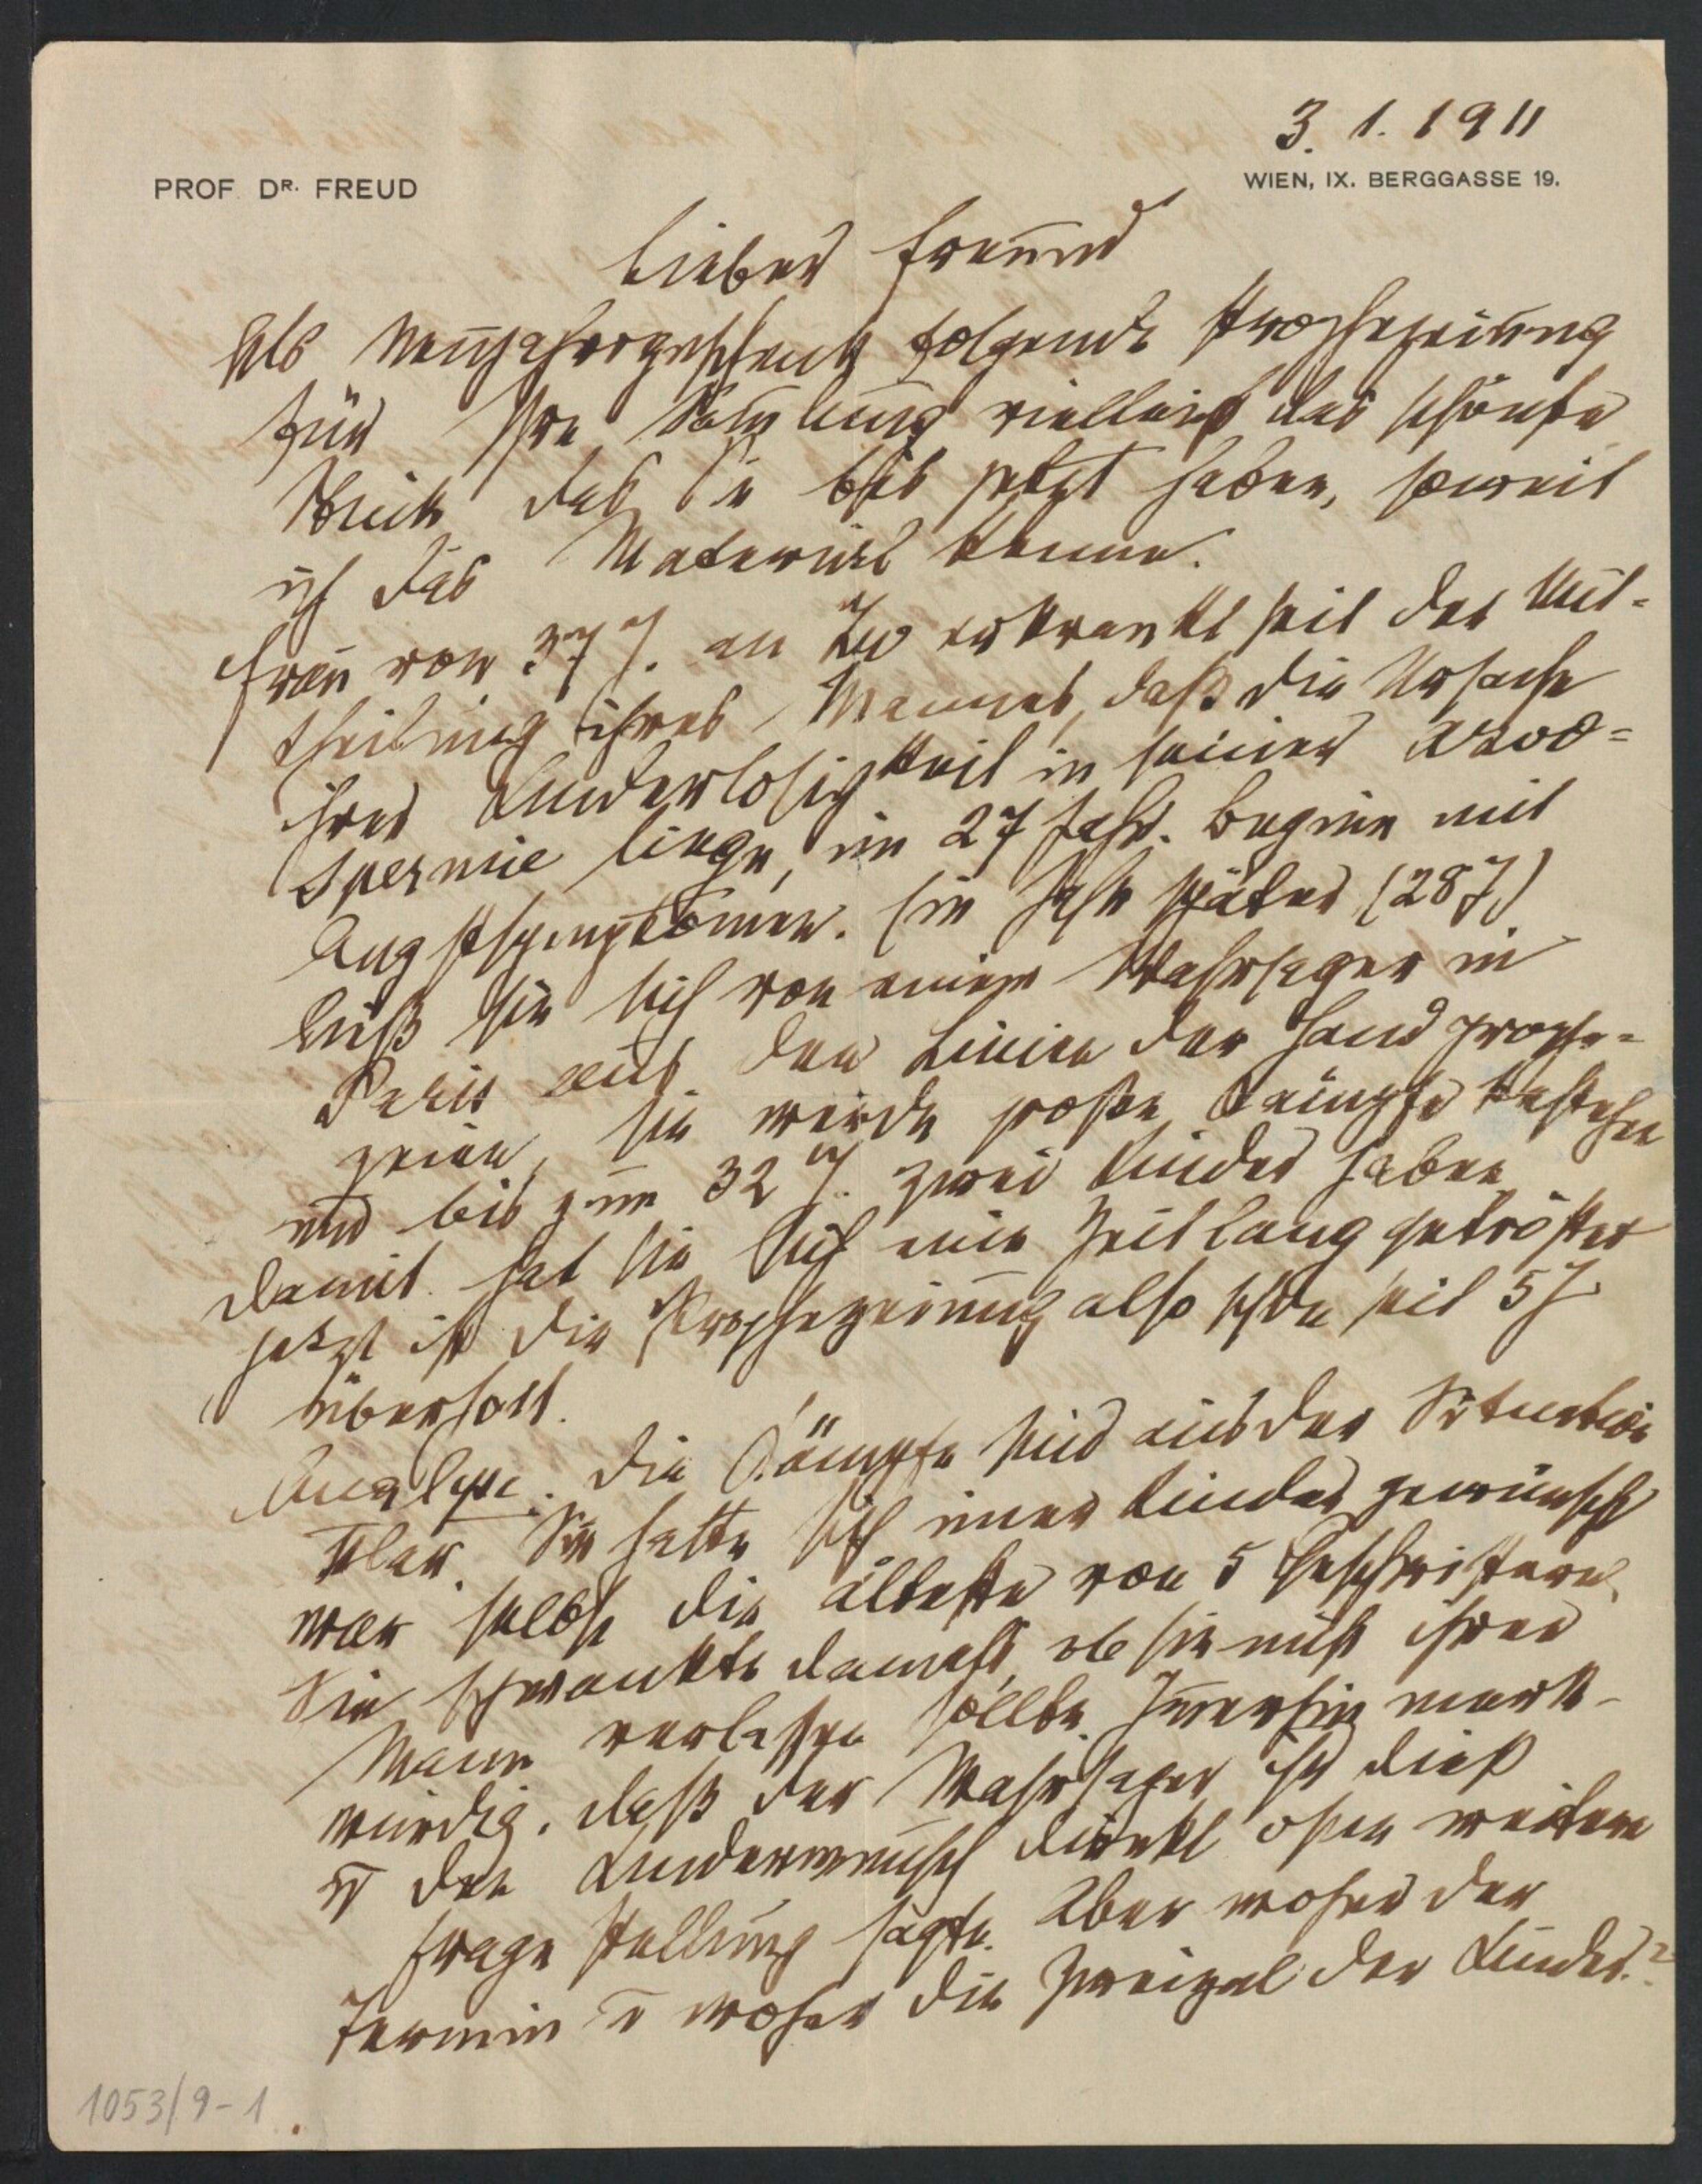 3. 1. 1911
PROF. DR. FREUD
WIEN, IX. BERGGASSE 19.
Lieber Freund
Als Neujahrsgeschenk folgende Prophezeiung
für Ihre Samlung vielleicht das schönste
Stück das Sie bis jetzt haben, soweit
ich das Material kenne.
Frau von 37 J. an Zw erkrankt seit der Mit-
theilung ihres Mannes, daß die Ursache
ihrer Kinderlosigkeit in seiner Azoo-
spermie liege, im 27 Jahr. Beginn mit
Angstsymptomen. Ein Jahr später (28 J)
ließ sie sich von einem Wahrsager in
Paris aus den Linien der Hand prophe-
zeien, sie werde große Kämpfe bestehen
und bis zum 32 J. zwei Kinder haben
Damit hat sie sich eine Zeitlang getröstet
jetzt ist die Prophezeiung also schon seit 5 J
überholt.
Analyse: Die Kämpfe sind aus der Situation
klar. Sie hatte sich imer Kinder gewünscht
war selbst die älteste von 5 Geschwistern.
Sie schwankte damals, ob sie nicht ihren
Mann verlassen sollte. Imerhin merk-
würdig, daß der Wahrsager ihr dieß
u den Kinderwunsch direkt ohne weitere
Fragestellung sagte. Aber woher der
Termin u woher die Zweizal der Kinder?
1053/9-1